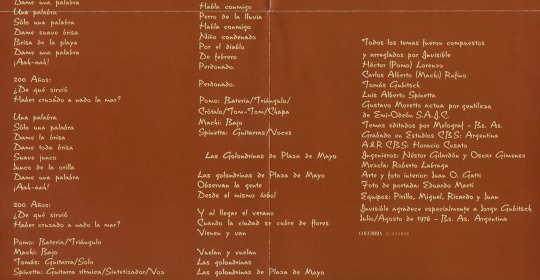 Dame una palabra
Una palabra
Sólo una palabra
Dame suave brisa
Brisa de la playa
Dame una palabra
¡Aah-aah!
200 Años:
¿De qué sirvió
Haber cruzado a nado la mar?
Una palabra
Sólo una palabra
Dame la brisa
Dame toda brisa
Suave junco
Junco de la orilla
Dame una palabra
¡Aah-aah!
200 Años:
¿De qué sirvió
Haber cruzado a nado la mar?
Pomo: Batería/Triángulo
Machi: Bajo
Tomás: Guitarra/Solo
Spinetta: Guitarra rítmica/Sintetizador/Voz
Habla conmigo
Perro de la lluvia
Habla conmigo
Niño condenado
Por el diablo
De febrero
Perdonado.
Perdonado.
Pomo: Batería/Triángulo/
Crótalo/Tom-Tom/Chapa
Machi: Bajo
Spinetta: Guitarras/Voces
Las Golondrinas de Plaza de Mayo
Las golondrinas de Plaza de Mayo
Observan la gente
Desde el mismo árbol
Y al llegar el verano
Cuando la ciudad se cubre de flores
Vienen y van
Vuelan y vuelan
Las golondrinas
Las golondrinas de Plaza de Mayo
Todos los temas fueron compuestos
y arreglados por Invisible
Héctor (Pomo) Lorenzo
Carlos Alberto (Machi) Rufino
Tomás Gubitsch
Luis Alberto Spinetta
Gustavo Moretto actua por gentileza
de Emi-Odeón S.A.I.C.
Temas editados por Melograf - Bs. As.
Grabado en Estudios CBS: Argentina
A&R CBS: Horacio Cusato
Ingenieros: Néstor Gilardón y Oscar Gimenez
Mezcla: Roberto Labraga
Arte y foto interior: Juan O. Gatti
Foto de portada: Eduardo Martí
Equipos: Pirillo, Miguel, Ricardo y Juan
Invisible agradece especialmente a Jorge Gubitsch
Julio/Agosto de 1976 - Bs. As. Argentina
COLUMBIA